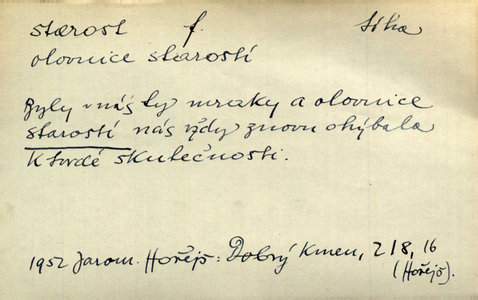 starost f. Síha
olovnice starostí
Byly v nás ty mraky a olovnice
starostí nás vždy znovu ohýbala
k tvrdé skutečnosti.
1952 Jarom. Hořejš: Dobrý Kmen, 218, 16
(Hořejš).